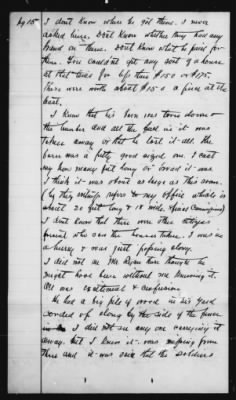 by 15
I don't know where he got them. I never
asked him. Don't know whether they were any
brand on them. Don't know what he paid for
them. You couldn't get any sort of a horse
at that time for less than $150 or $175.
These were worth about $150 a piece at the
least.
I know that his barn was torn down &
the lumber and all the feed in it was
taken away or that he lost it all. The
barn was a pretty good sized one. I can't
say how many feet long or broad it was.
I think it was about as large as this room.
(by this witness refers to my office which is
about 20 feet long & 18 wide.
I don't know that there were other citizens
present who saw the horses taken. I was in
a hurry & was just passing along.
I did not see Mr Ryan there though he
might have been without me knowing it.
All was excitement & confusion
He had a big pile of wood in his yard
corded up along by the side of the fence
I did not see any one carrying it
away. But I knew it was missing from
there and it was said that the soldiers